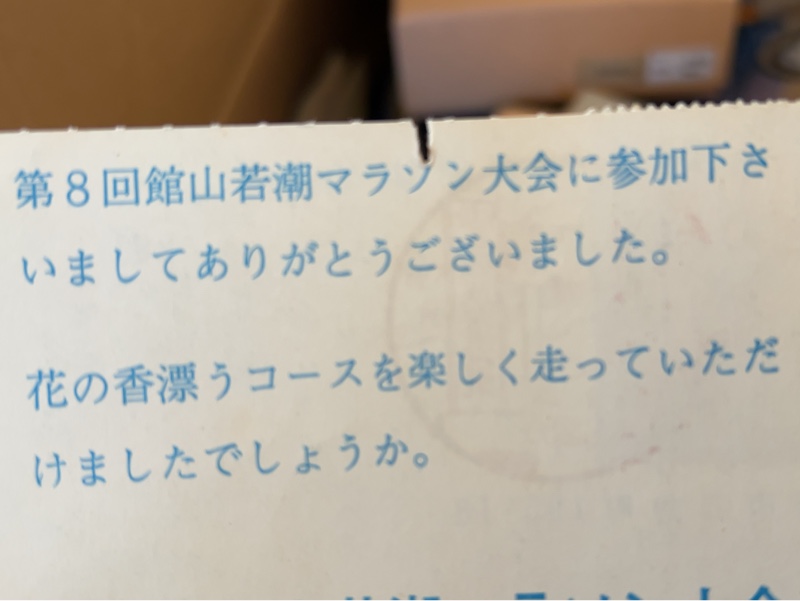 第8回館山若潮マラソン大会に参加下さ
いましてありがとうございました。
花の香漂うコースを楽しく走っていただ
けましたでしょうか。